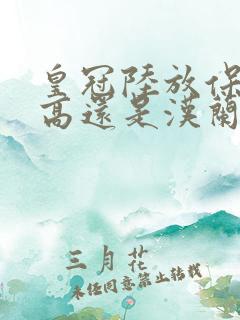 皇冠陸放保
高還是漢蘭
三月花
未经同意禁止转载